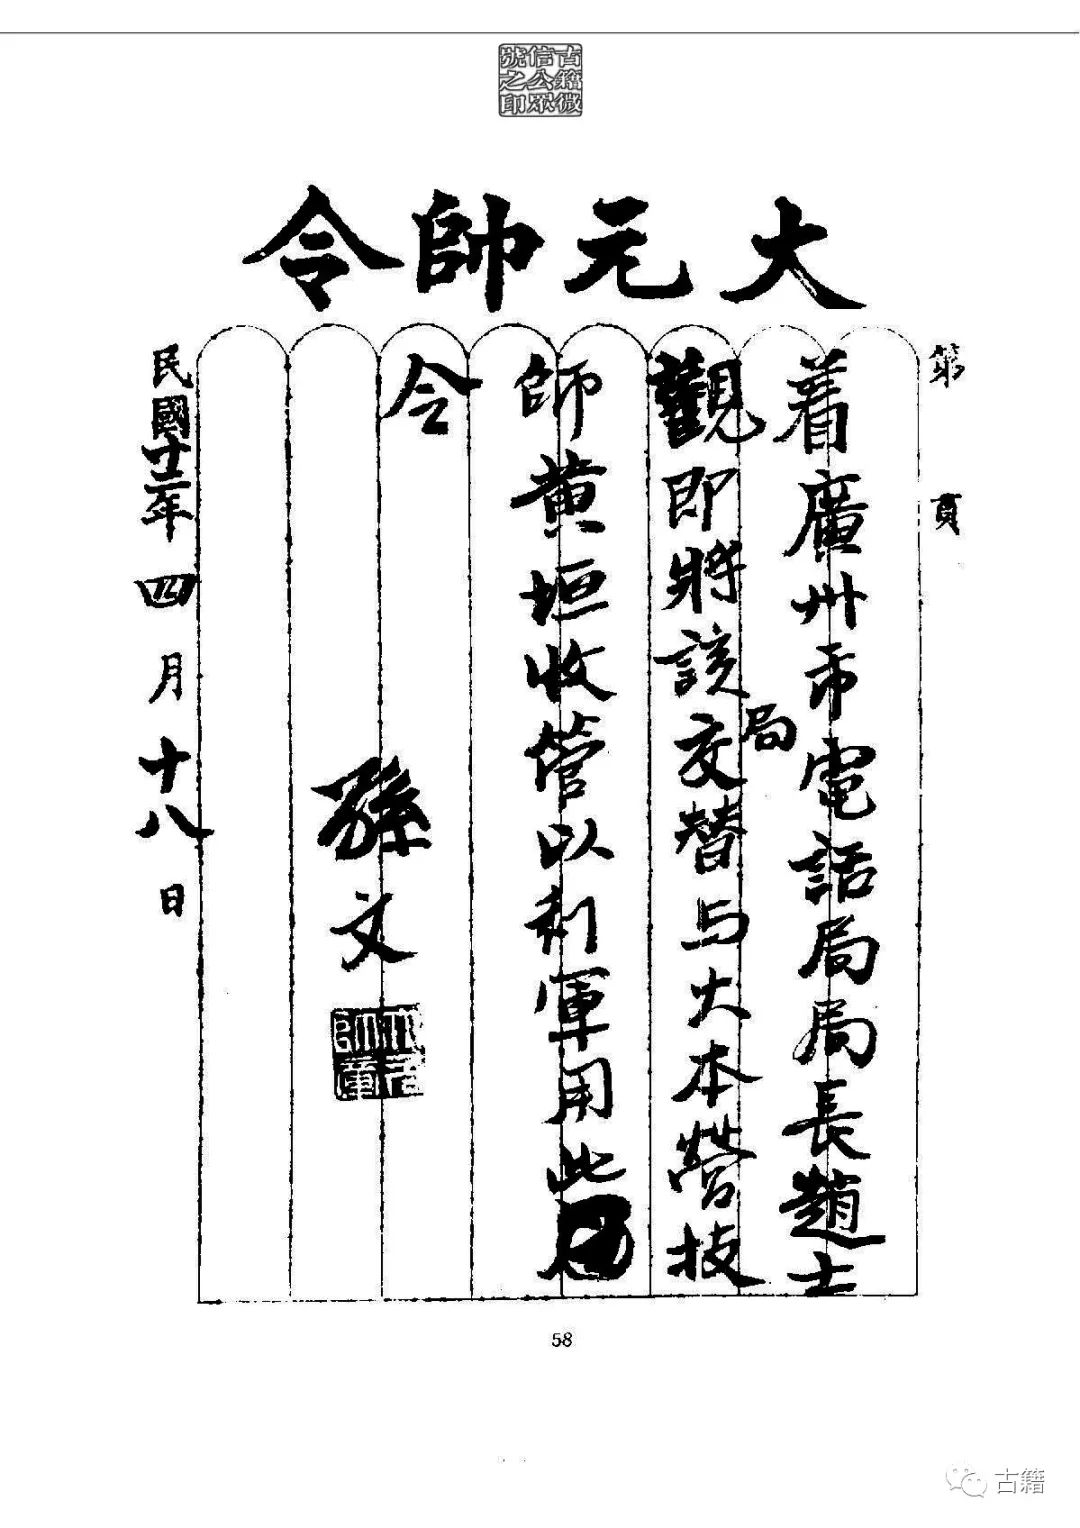 古籍微
信公眾
號之印
大元帥令
第 頁
着廣州市電話局局長趙士
觀即將該局交替与大本營技
師黃垣收管以利軍用此
令
孫文
大元帥章
民國十二年四月十八日
58
古籍